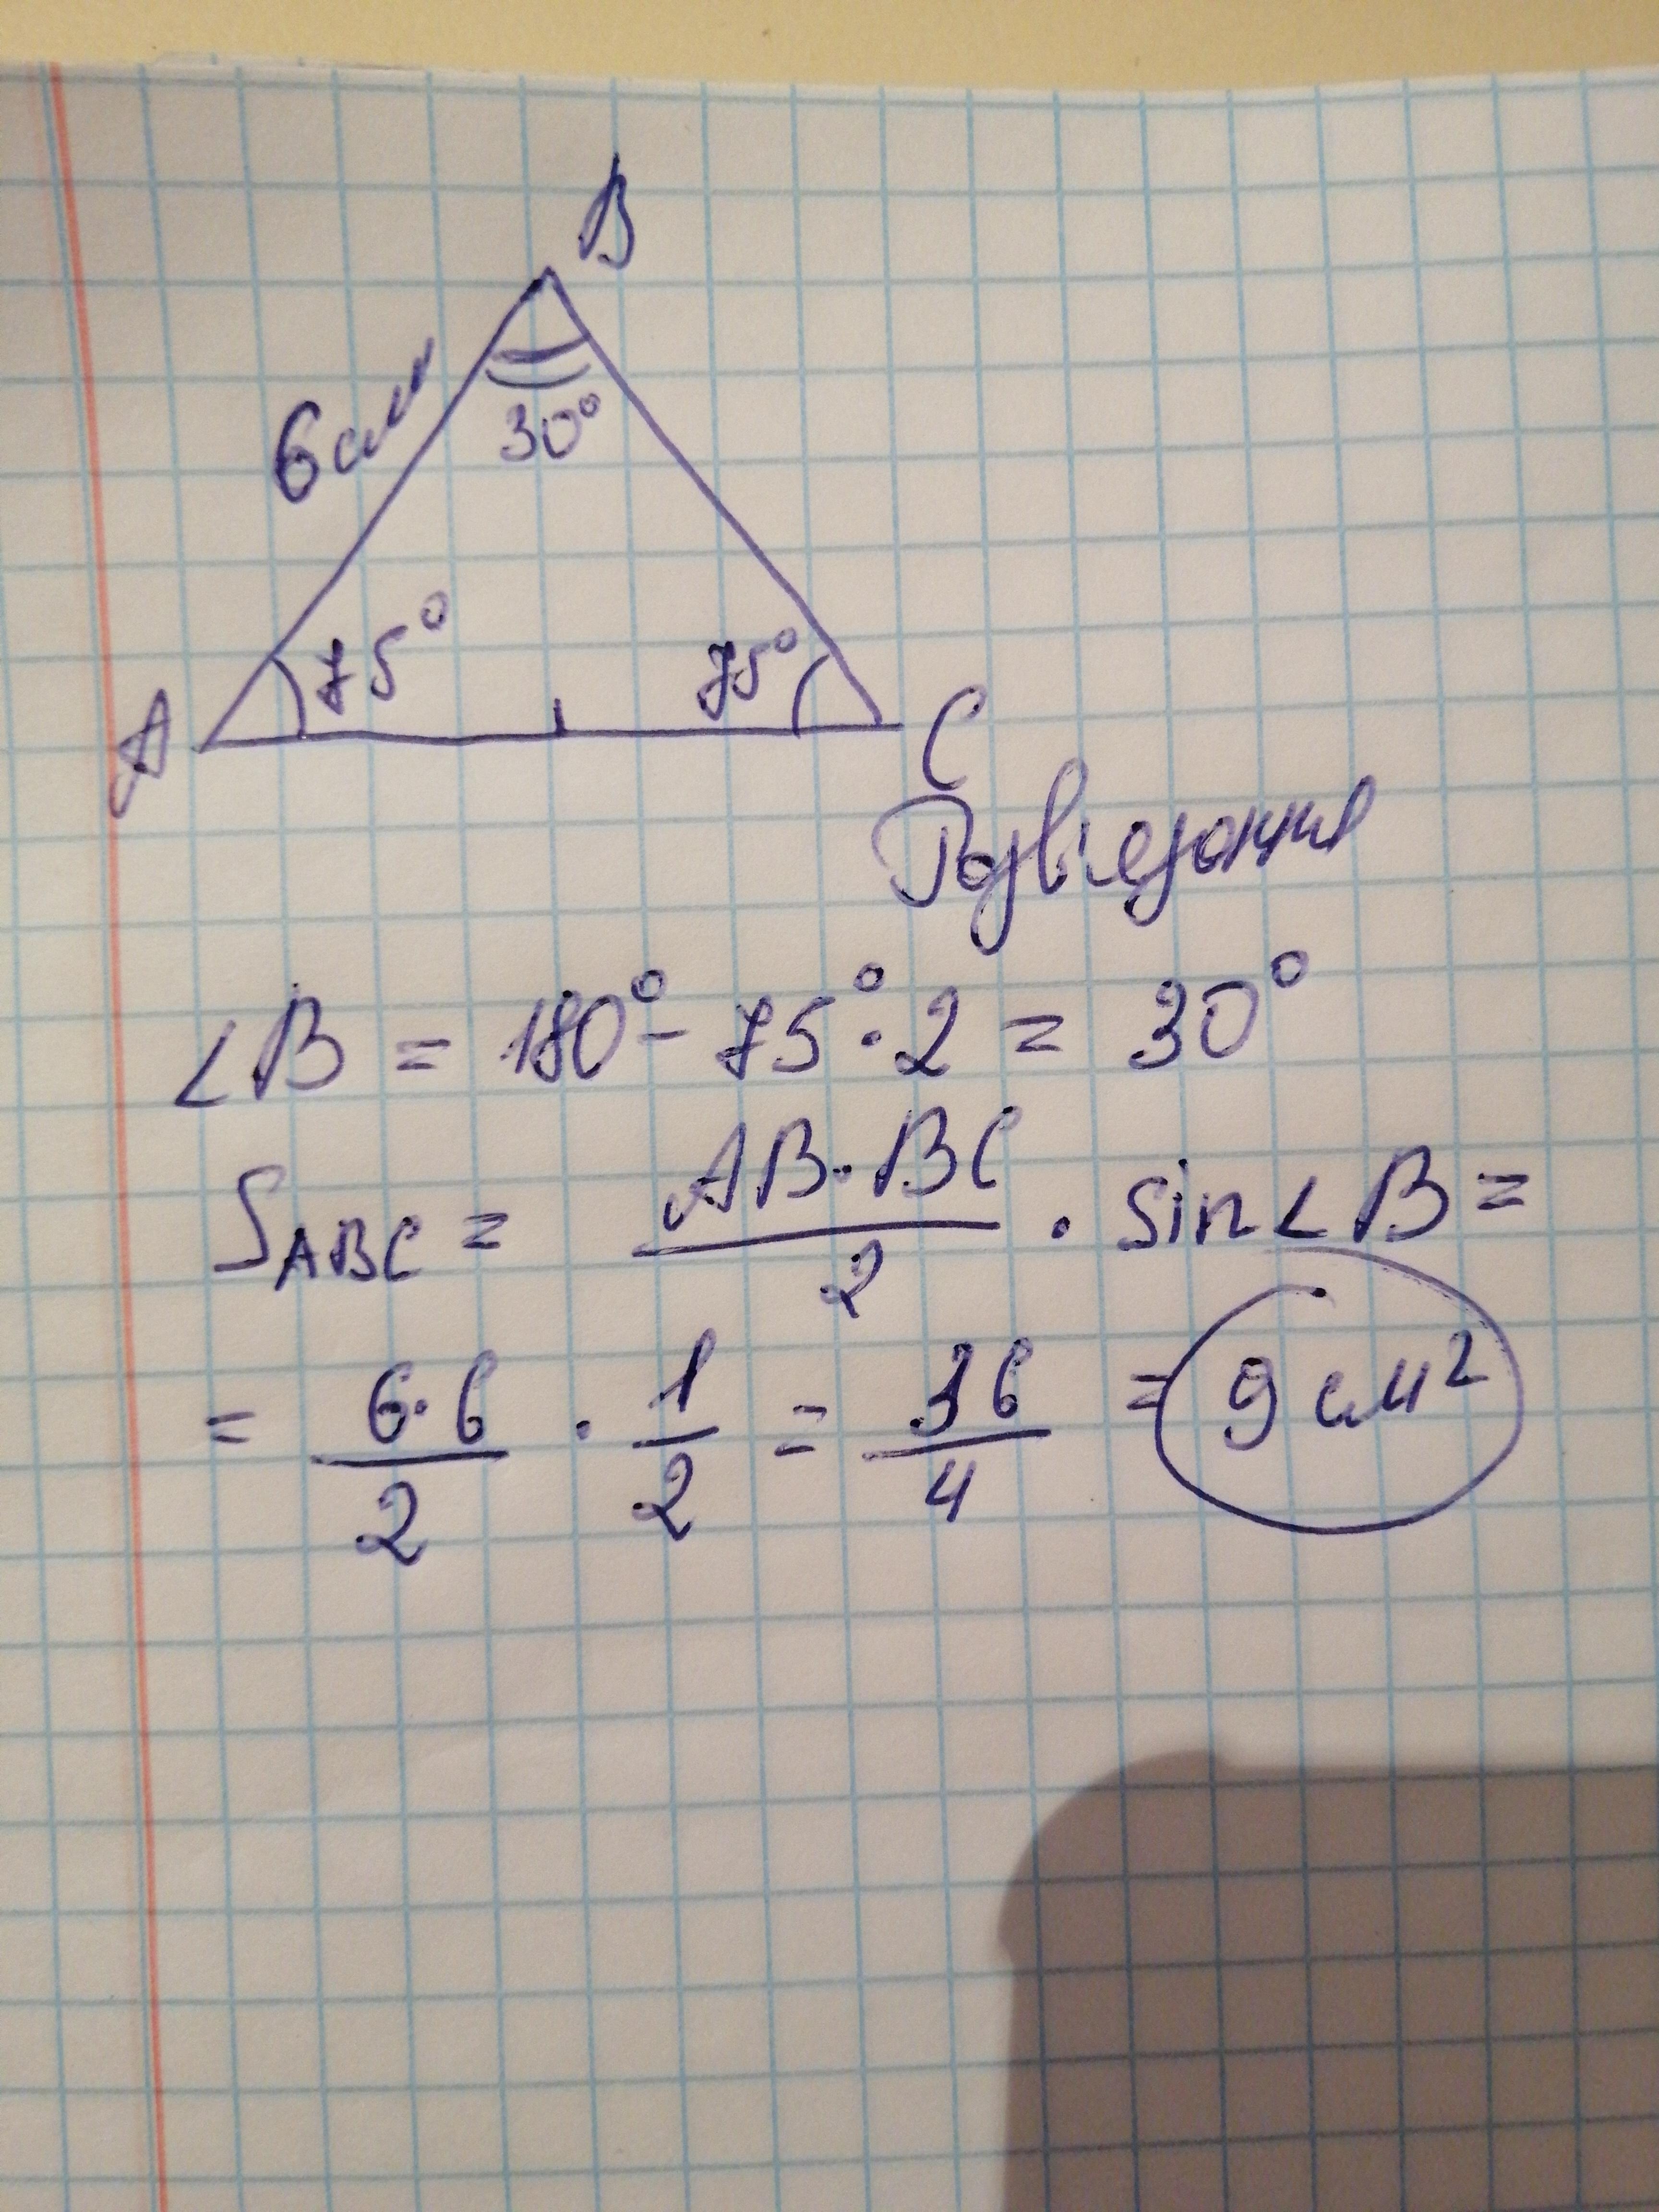 B
6 см
30°
75°
75°
A
C
Розв'язання
∠B = 180° - 75° · 2 = 30°
S_ABC = AB · BC / 2 · sin∠B =
= 6 · 6 / 2 · 1 / 2 = 36 / 4 = 9 см²